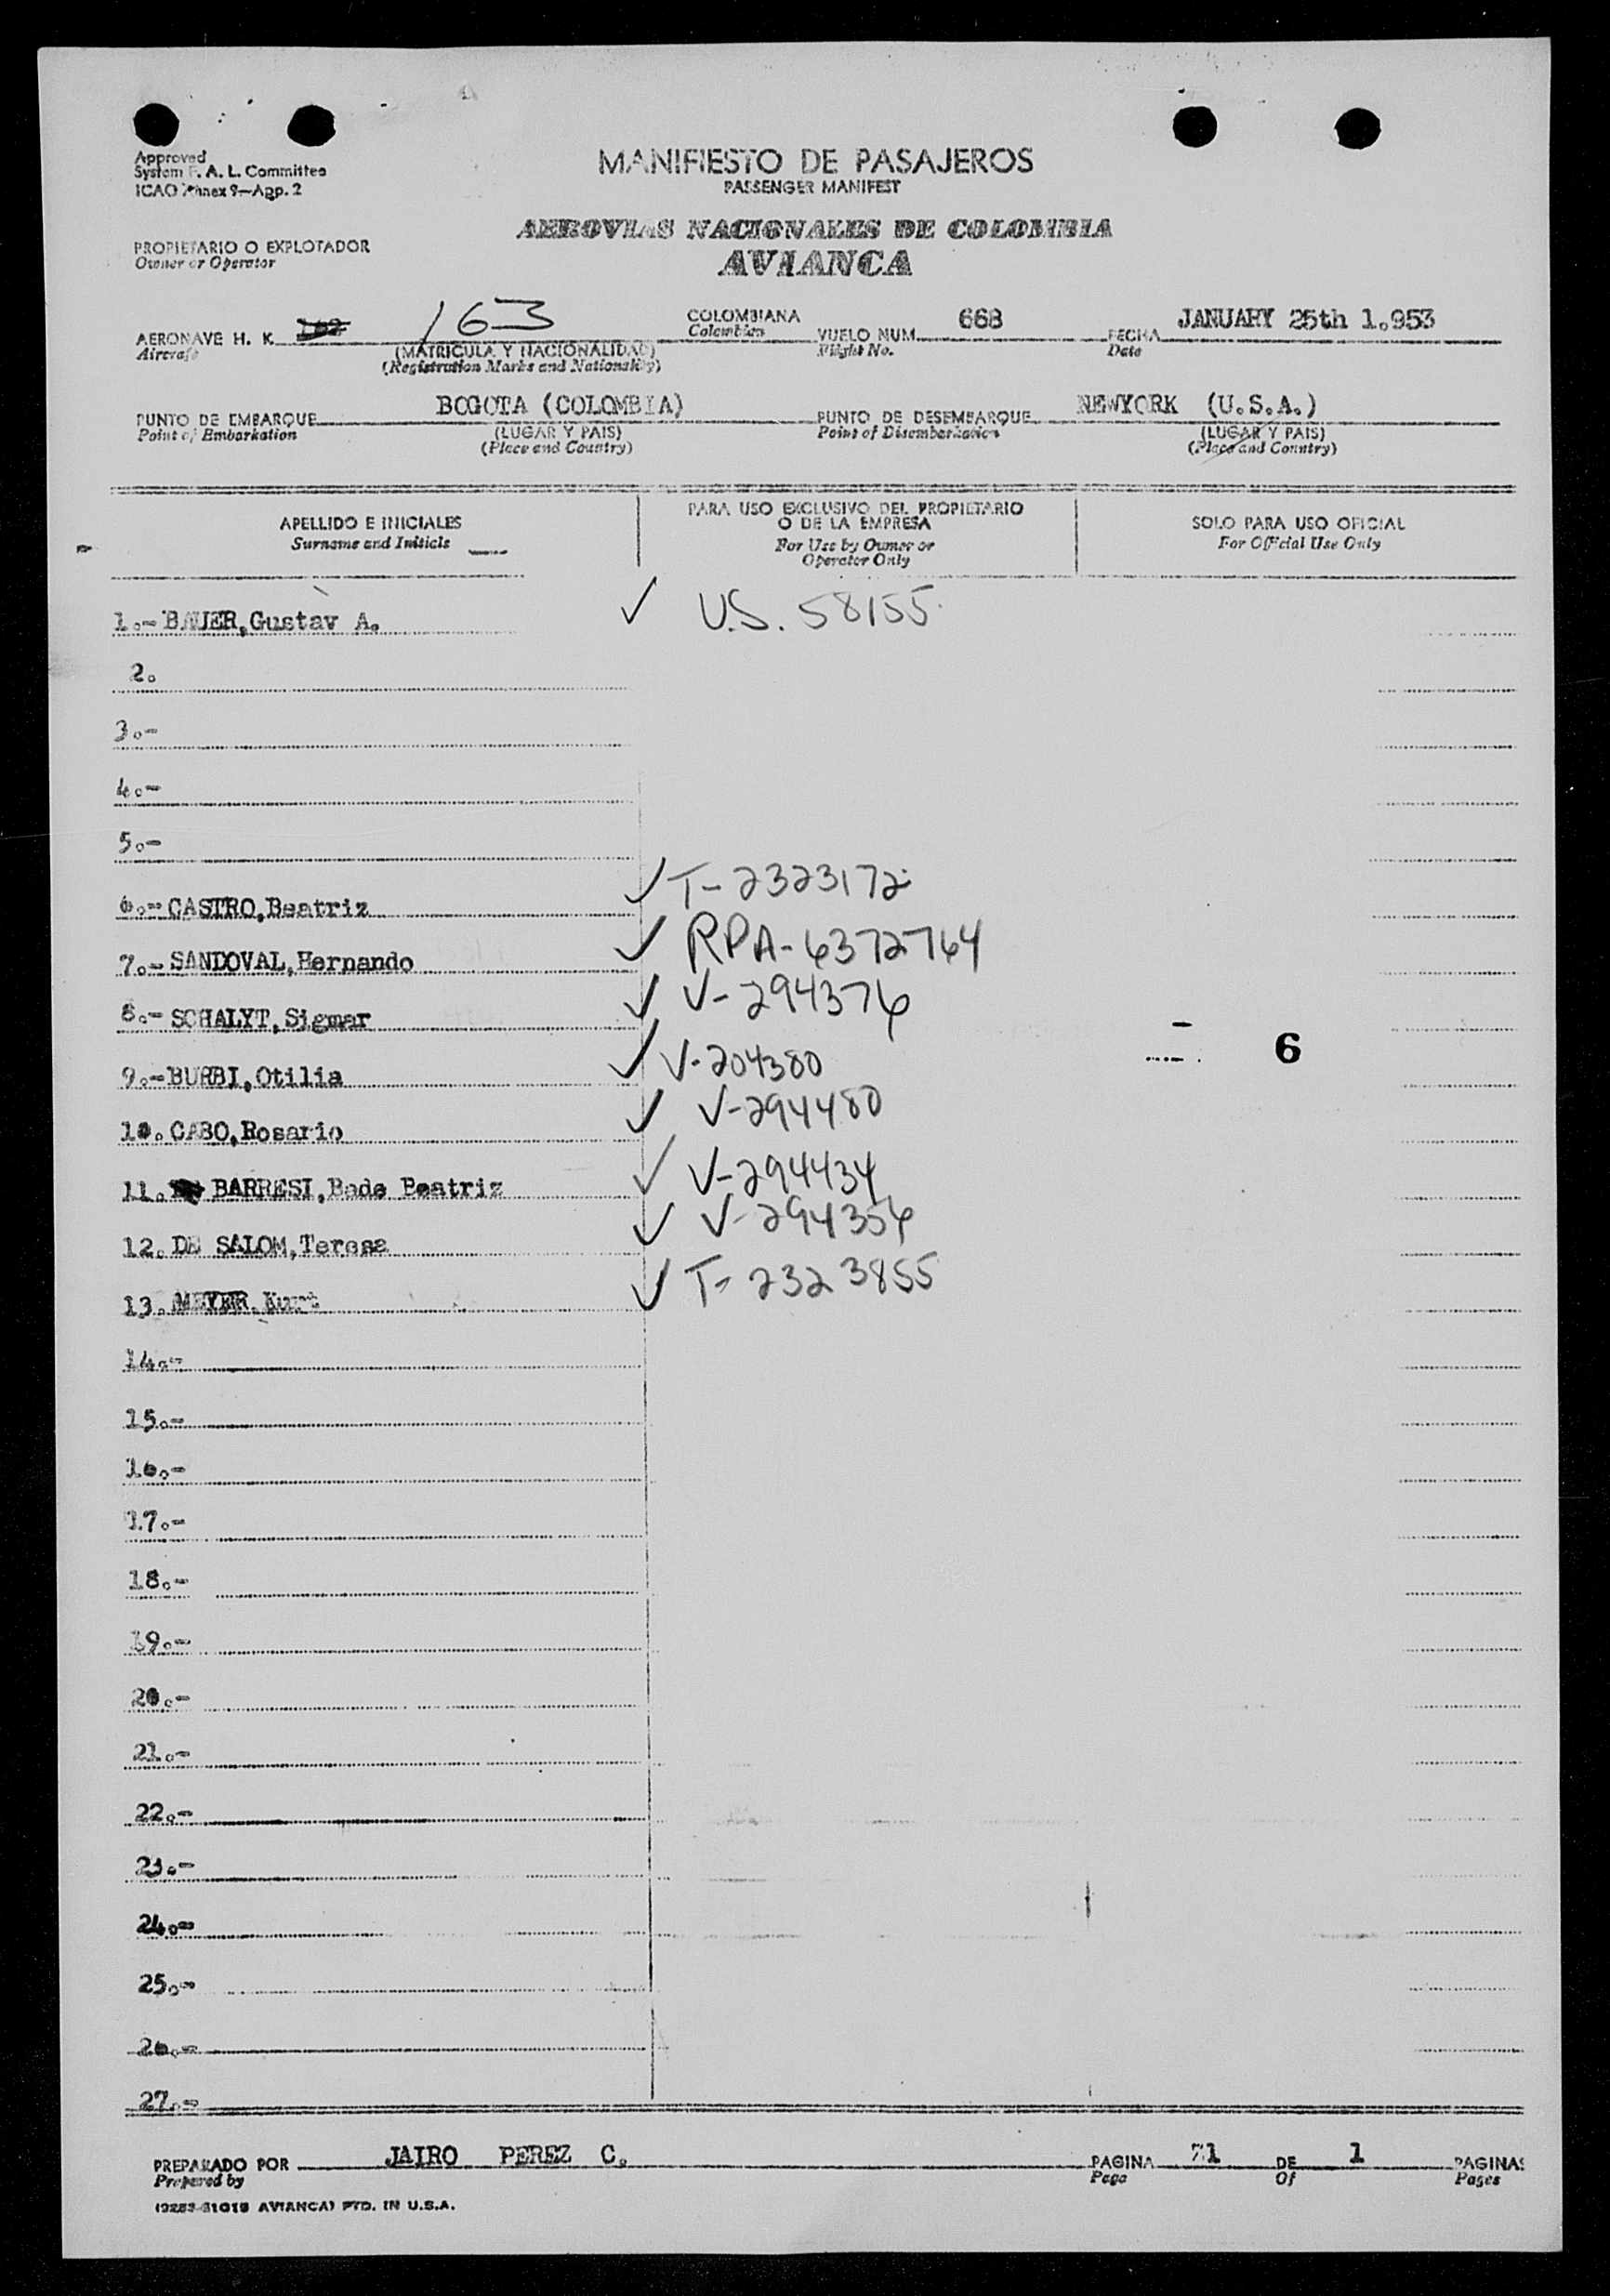 Approved
System F. A. L. Committee
ICAO Annex 9—App. 2
MANIFIESTO DE PASAJEROS
PASSENGER MANIFEST
AEROVIAS NACIONALES DE COLOMBIA
AVIANCA
PROPIETARIO O EXPLOTADOR
Owner or Operator
AERONAVE H. K. 163 COLOMBIANA VUELO NUM. 668 FECHA JANUARY 25th 1.953
Aircraft (MATRICULA Y NACIONALIDAD) Colombian Flight No. Date
(Registration Marks and Nationality)
PUNTO DE EMBARQUE BOGOTA (COLOMBIA) PUNTO DE DESEMBARQUE NEWYORK (U.S.A.)
Point of Embarkation (LUGAR Y PAIS) Point of Disembarkation (LUGAR Y PAIS)
(Place and Country) (Place and Country)
APELLIDO E INICIALES
Surname and Initials
PARA USO EXCLUSIVO DEL PROPIETARIO
O DE LA EMPRESA
For Use by Owner or
Operator Only
SOLO PARA USO OFICIAL
For Official Use Only
1.- BAUER,Gustav A. ✓ U.S. 58155
2.
3.-
4.-
5.-
6.- CASTRO,Beatriz ✓ T-2323172
7.- SANDOVAL,Hernando ✓ RPA-6372764
8.- SCHALYT,Sigmar ✓ V-294376
9.-BURBI,Otilia ✓ V-204380
6
10. CABO,Rosario ✓ V-294480
11. BARRESI,Bade Beatriz ✓ V-294434
12. DE SALOM,Teresa ✓ V-294356
13. MEYER,Kurt ✓ T-2323855
14.-
15.-
16.-
17.-
18.-
19.-
20.-
21.-
22.-
23.-
24.-
25.-
26.-
27.-
PREPARADO POR JAIRO PEREZ C. PAGINA 1 DE 1 PAGINAS
Prepared by Page Of Pages
AVIANCA) PTD. IN U.S.A.